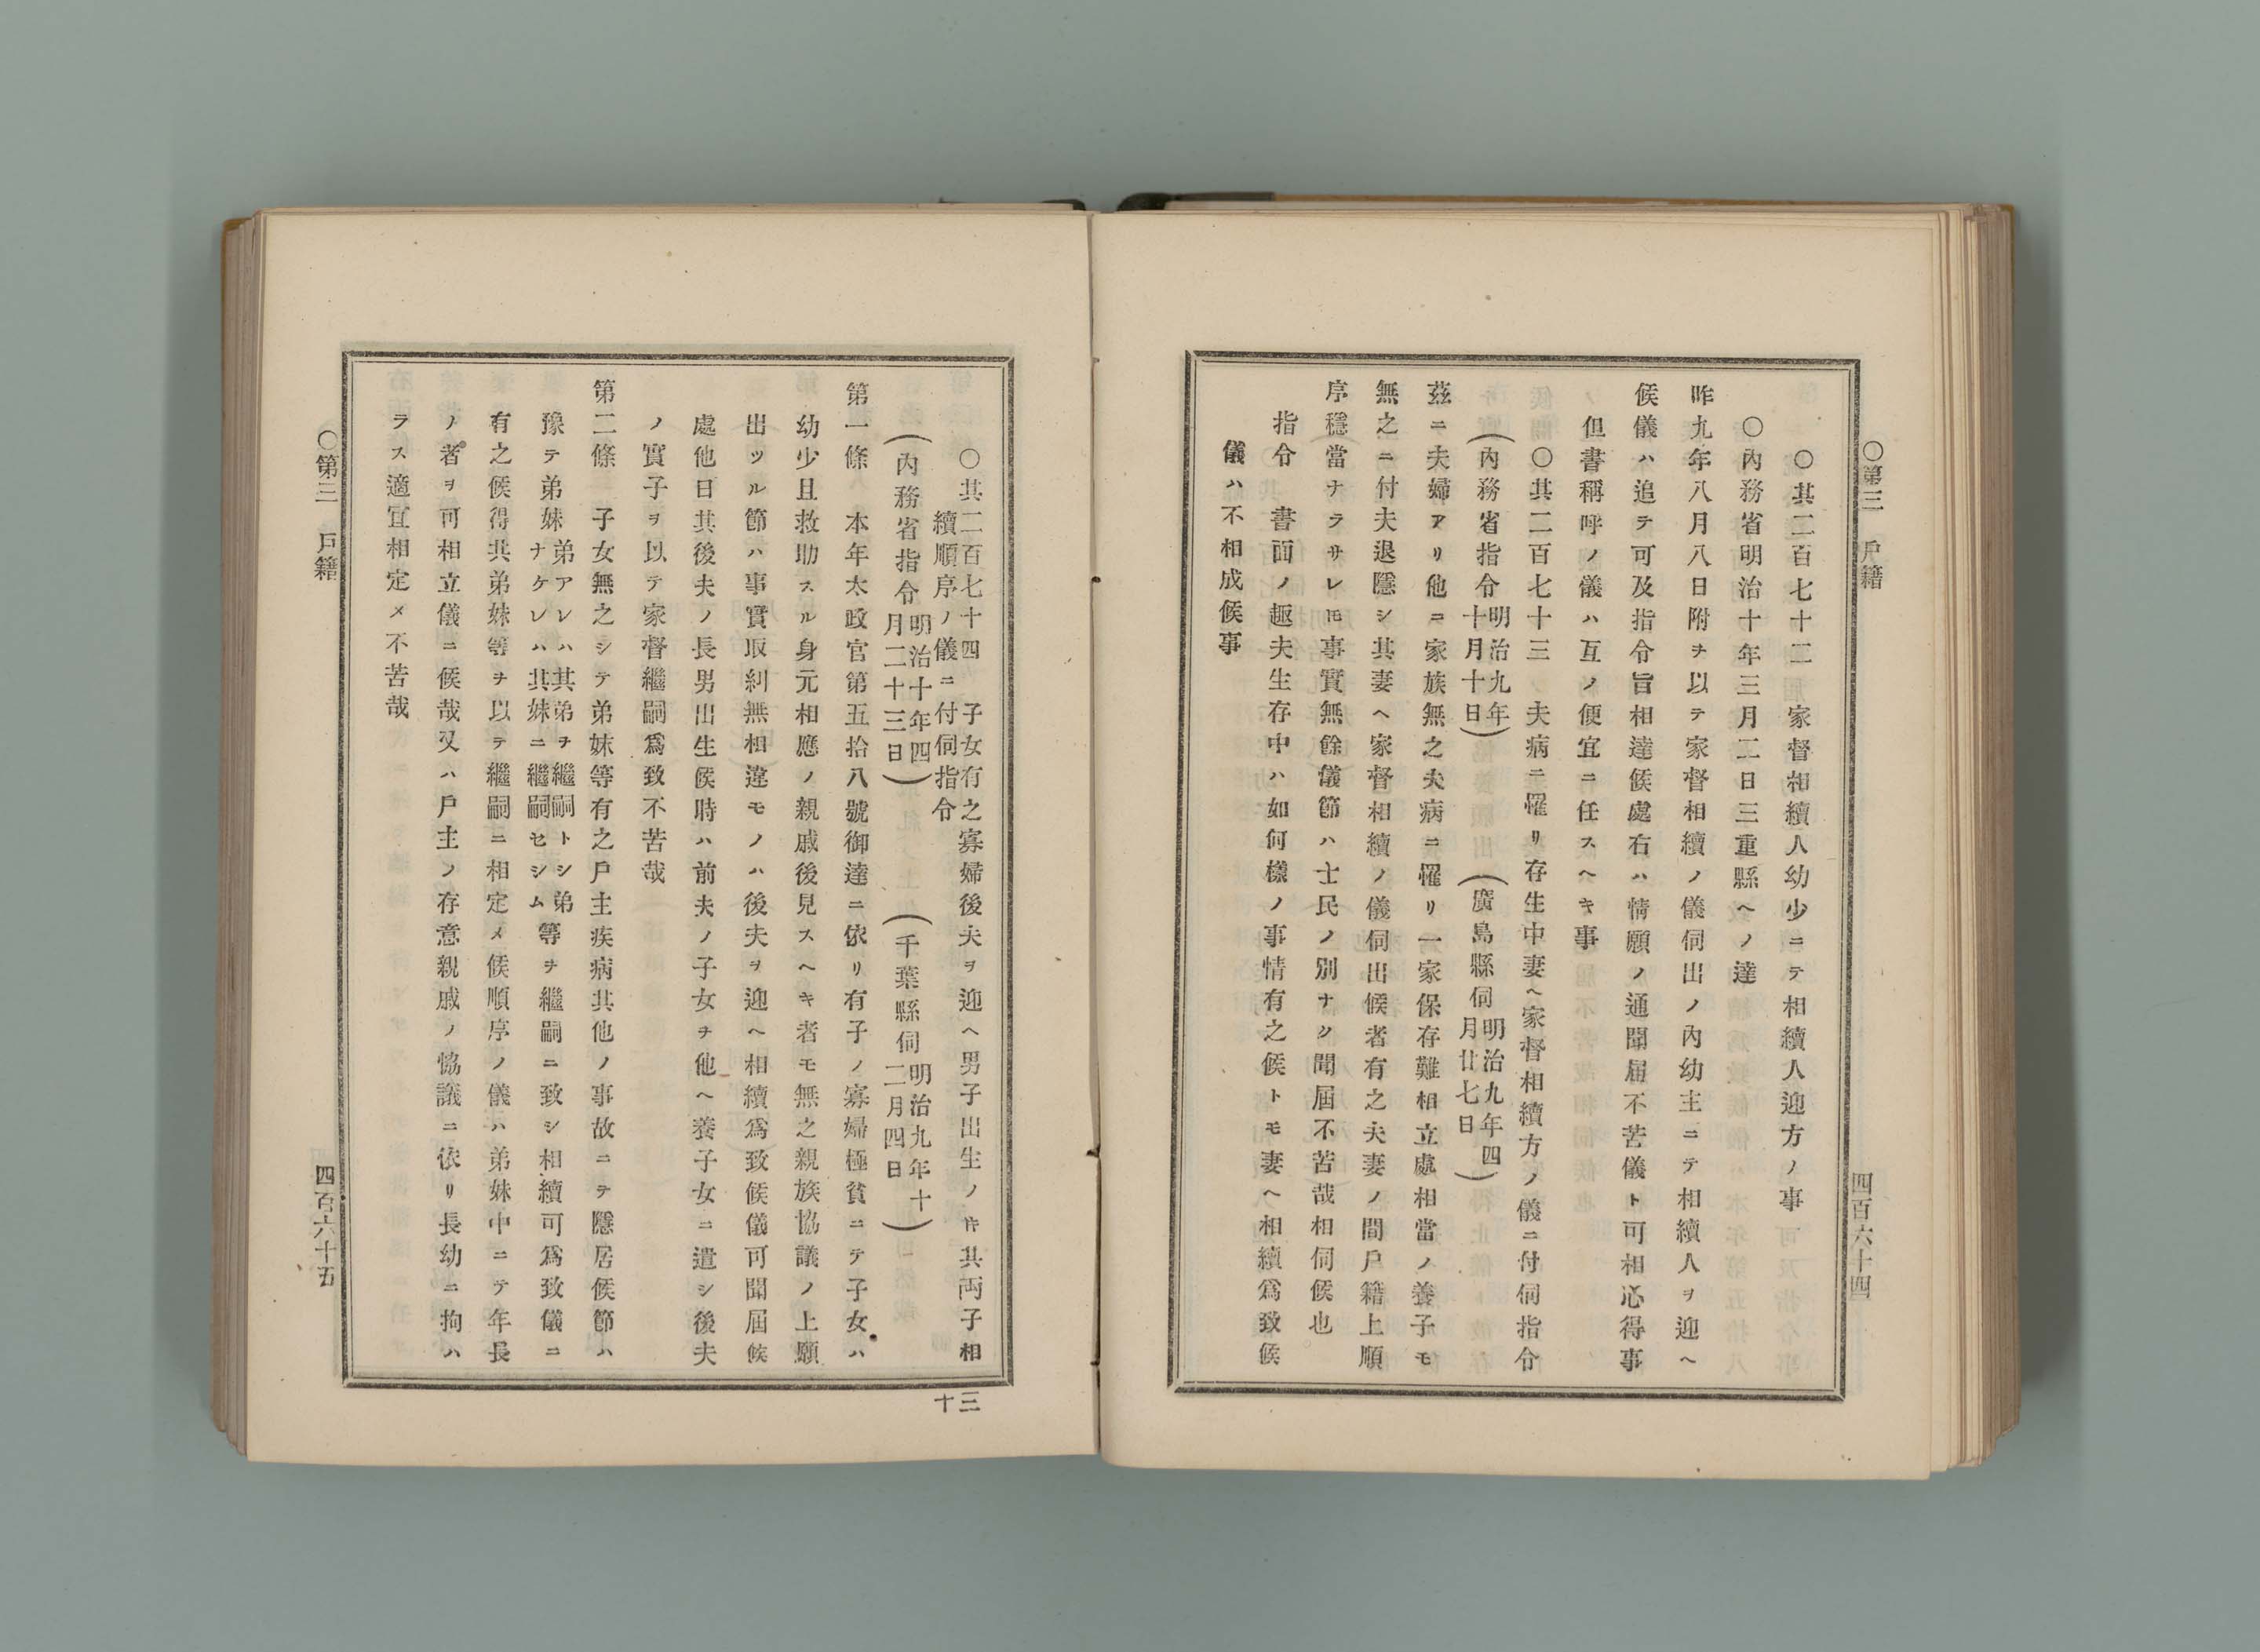 〇第三　戶籍
四百六十四
〇其二百七十二家督相續人幼少ニテ相續人迎方ノ事
〇內務省明治十年三月二日三重縣ヘノ達
昨九年八月八日附ヲ以テ家督相續ノ儀伺出ノ內幼主ニテ相續人ヲ迎ヘ
候儀ハ追テ可及指令旨相達候處右ハ情願ノ通聞屆不苦儀ト可相心得事
但書稱呼ノ儀ハ互ノ便宜ニ任スヘキ事
〇其二百七十三　夫病ニ罹リ存生中妻ヘ家督相續方ノ儀ニ付伺指令
(內務省指令明治九年十月十日)　(廣島縣伺明治九年四月廿七日)
茲ニ夫婦アリ他ニ家族無之夫病ニ罹リ一家保存難相立處相當ノ養子モ
無之ニ付夫退隱シ其妻ヘ家督相續ノ儀伺出候者有之夫妻ノ間戶籍上順
序穩當ナラサレ𪜈事實無餘儀節ハ士民ノ別ナク聞屆不苦哉相伺候也
指令　書面ノ趣夫生存中ハ如何樣ノ事情有之候トモ妻ヘ相續爲致候
儀ハ不相成候事
〇其二百七十四　子女有之寡婦後夫ヲ迎ヘ男子出生ノ𬼀其両子相
續順序ノ儀ニ付伺指令
(內務省指令明治十年四月二十三日)　(千葉縣伺明治九年十二月四日)
第一條　本年太政官第五拾八號御達ニ依リ有子ノ寡婦極貧ニテ子女ハ
幼少且救助スル身元相應ノ親戚後見スヘキ者モ無之親族協議ノ上願
出ツル節ハ事實取糾無相違モノハ後夫ヲ迎ヘ相續爲致候儀可聞屆候
處他日其後夫ノ長男出生候時ハ前夫ノ子女ヲ他ヘ養子女ニ遣シ後夫
ノ實子ヲ以テ家督繼嗣爲致不苦哉
第二條　子女無之シテ弟妹等有之戶主疾病其他ノ事故ニテ隱居候節ハ
豫テ弟妹弟アレハ其弟ヲ繼嗣トシ弟ナケレハ其妹ニ繼嗣セシム等ヲ繼嗣ニ致シ相續可爲致儀ニ
有之候得共弟妹等ヲ以テ繼嗣ニ相定メ候順序ノ儀ハ弟妹中ニテ年長
ノ者ヲ可相立儀ニ候哉又ハ戶主ノ存意親戚ノ恊議ニ依リ長幼ニ拘ハ
ラス適宜相定メ不苦哉
〇第三　戶籍
四百六十五
三十